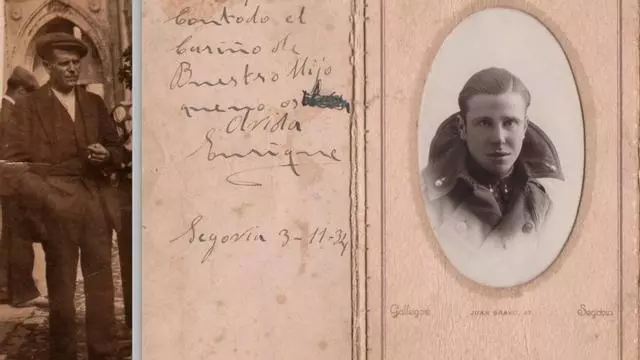 Con todo el
Cariño de
Buestro Hijo
que no os
olvida
Enrique
Segovia 3-11-34
Gallegos JUAN BRAVO, 47. Segovia